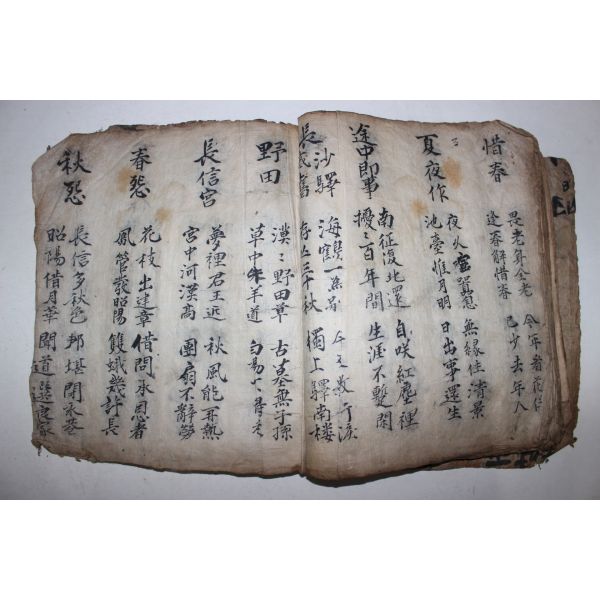 惜春
畏老身全老 今年看花伴
逢春解惜春 已少去年人
夏夜作
夜火喧暫息 無緣住清景
池臺惟月明 日出事還生
途中即事
南征復北還 自咲紅塵裡
擾〻百年間 生涯不暫閑
長沙驛
海鶴一為別 今來數行淚
三十秋 獨上驛南楼
野田
漠〻野田草 古墓無子孫
草中牛羊道
長信宮
夢裡君王近 秋風能再熱
宮中河漢高 團扇不辭勞
春怨
花枝出建章 借問承恩者
鳳管發昭陽 雙蛾幾許長
秋怨
長信多秋色 那堪閉永巷
昭陽借月華 聞道選良家